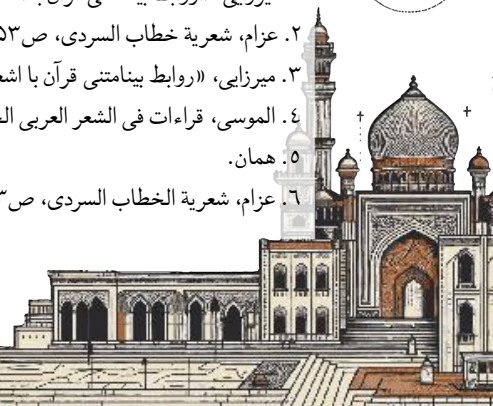 ٢. عزام، شعرية خطاب السردی، ص٥٣
٣. میرزایی، «روابط بینامتنی قرآن با اشع
٤. الموسی، قراءات فی الشعر العربی الح
٥. همان.
٦. عزام، شعریة الخطاب السردی، ص٣